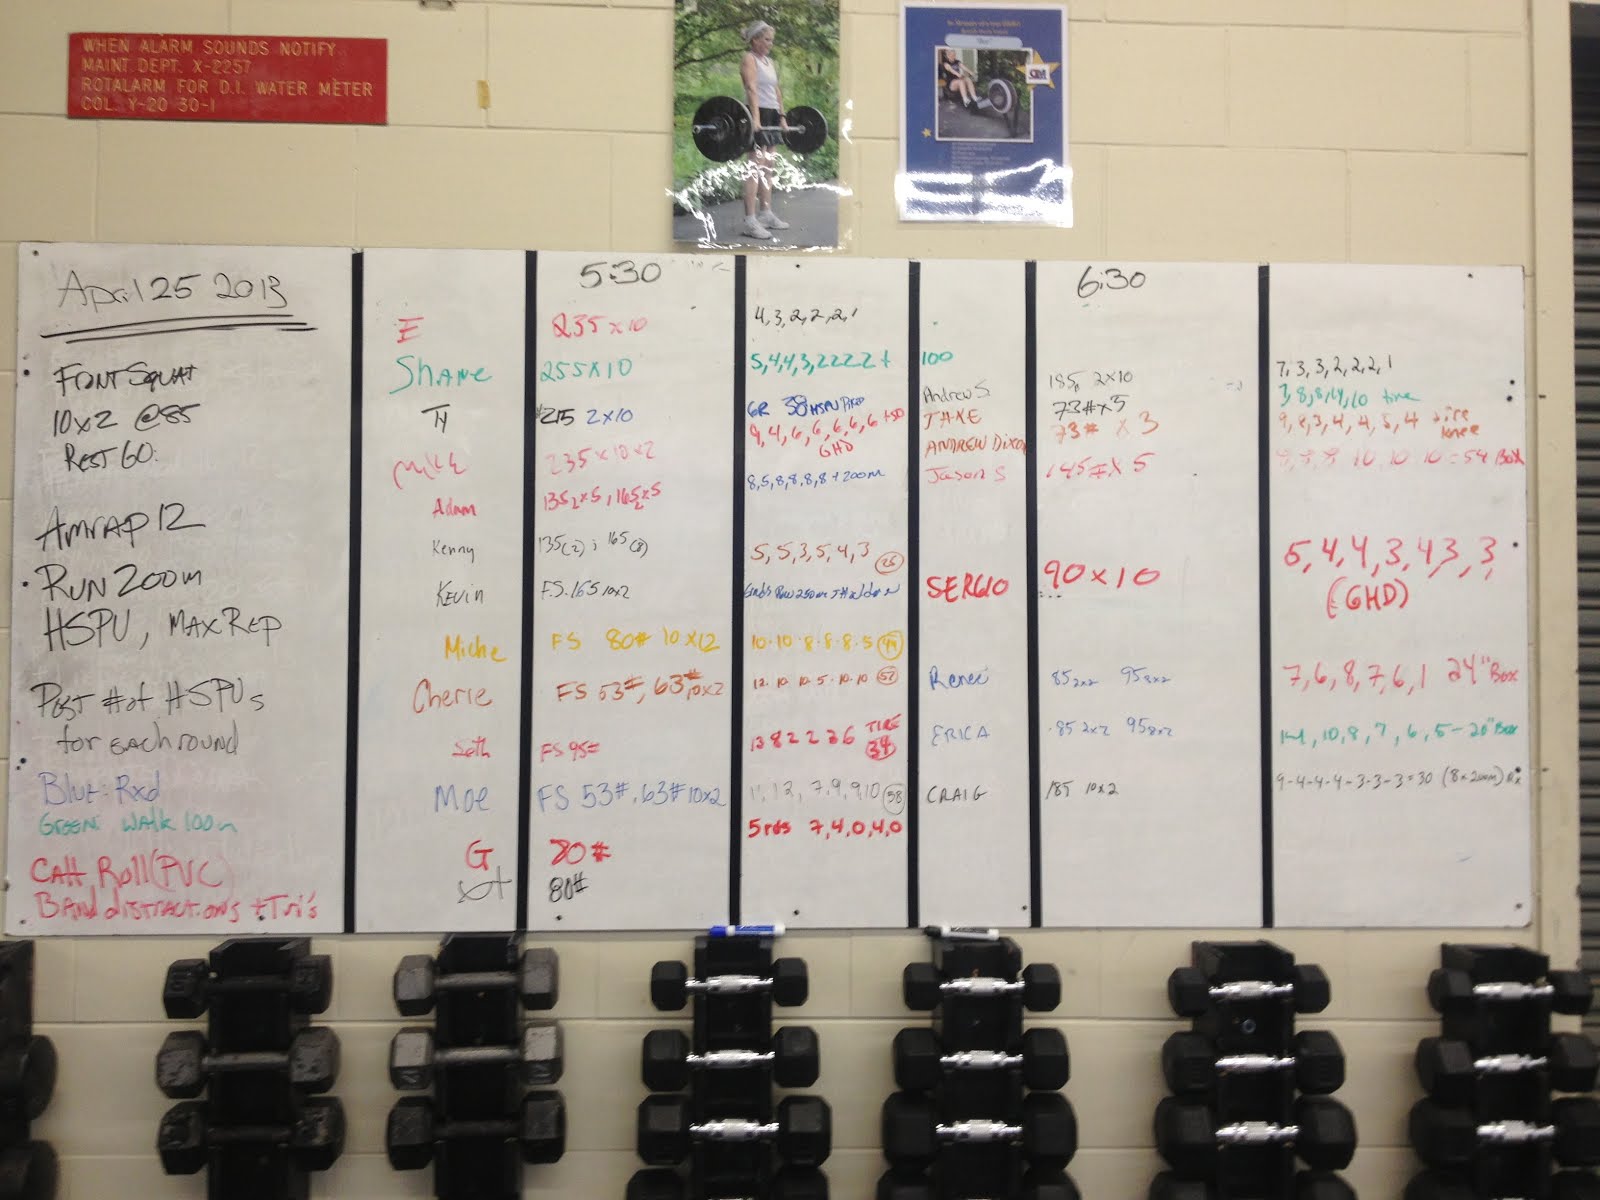 WHEN ALARM SOUNDS NOTIFY
MAINT. DEPT. X-2257
ROTALARM FOR D.I. WATER METER
COL. Y-20 30-1
April 25 2013
Front Squat
10x2 @85
Rest 60.
Amrap 12
Run 200m
HSPU, Max Rep
Post # of HSPUs
for each round
Blue: Rxd
Green: Walk 100m
Calf Roll (PVC)
Band distractions + Tri's
5:30
E 235x10 4,3,2,2,2,1
Shane 255x10 5,4,4,3,2222 + 100
Ty #215 2x10 6R 38 HSPU Rxd
Mike 235x10x2 9,4,6,6,6,6,6 +50
GHD
Adam 135 2x5, 165 2x5 8,5,8,8,8,8 + 200m
Kenny 135(2); 165(8) 5,5,3,5,4,3 25
Kevin F.S. 165 10x2
Miche FS 80# 10x12 10·10·8·8·8·5 49
Cherie FS 53#, 63# 10x2 12·10·10·5·10·10 57
Seth FS 95# 13 8 2 2 3 6 TIRE
34
Moe FS 53#, 63# 10x2 11, 12, 7, 9, 9, 10 58
5 rds 7,4,0,4,0
G 80#
80#
6:30
7,3,3,2,2,2,1
Andrew S 185 2x10 3,8,8,14,10 tire
JAKE 73#x5 9,8,3,4,4,5,4 tire
knee
ANDREW Dixon 73# x 3
Jason S 145#x5 10 10 10 = 54 Box
SERGIO 90x10 5,4,4,3,4,3,3,
(GHD)
Renee 85 2x2 95 8x2 7,6,8,7,6,1 24" Box
ERICA 85 2x2 95 8x2 14,10,8,7,6,5 - 20" Box
CRAIG 185 10x2 9-4-4-4-3-3-3=30 (8x200m) Rx